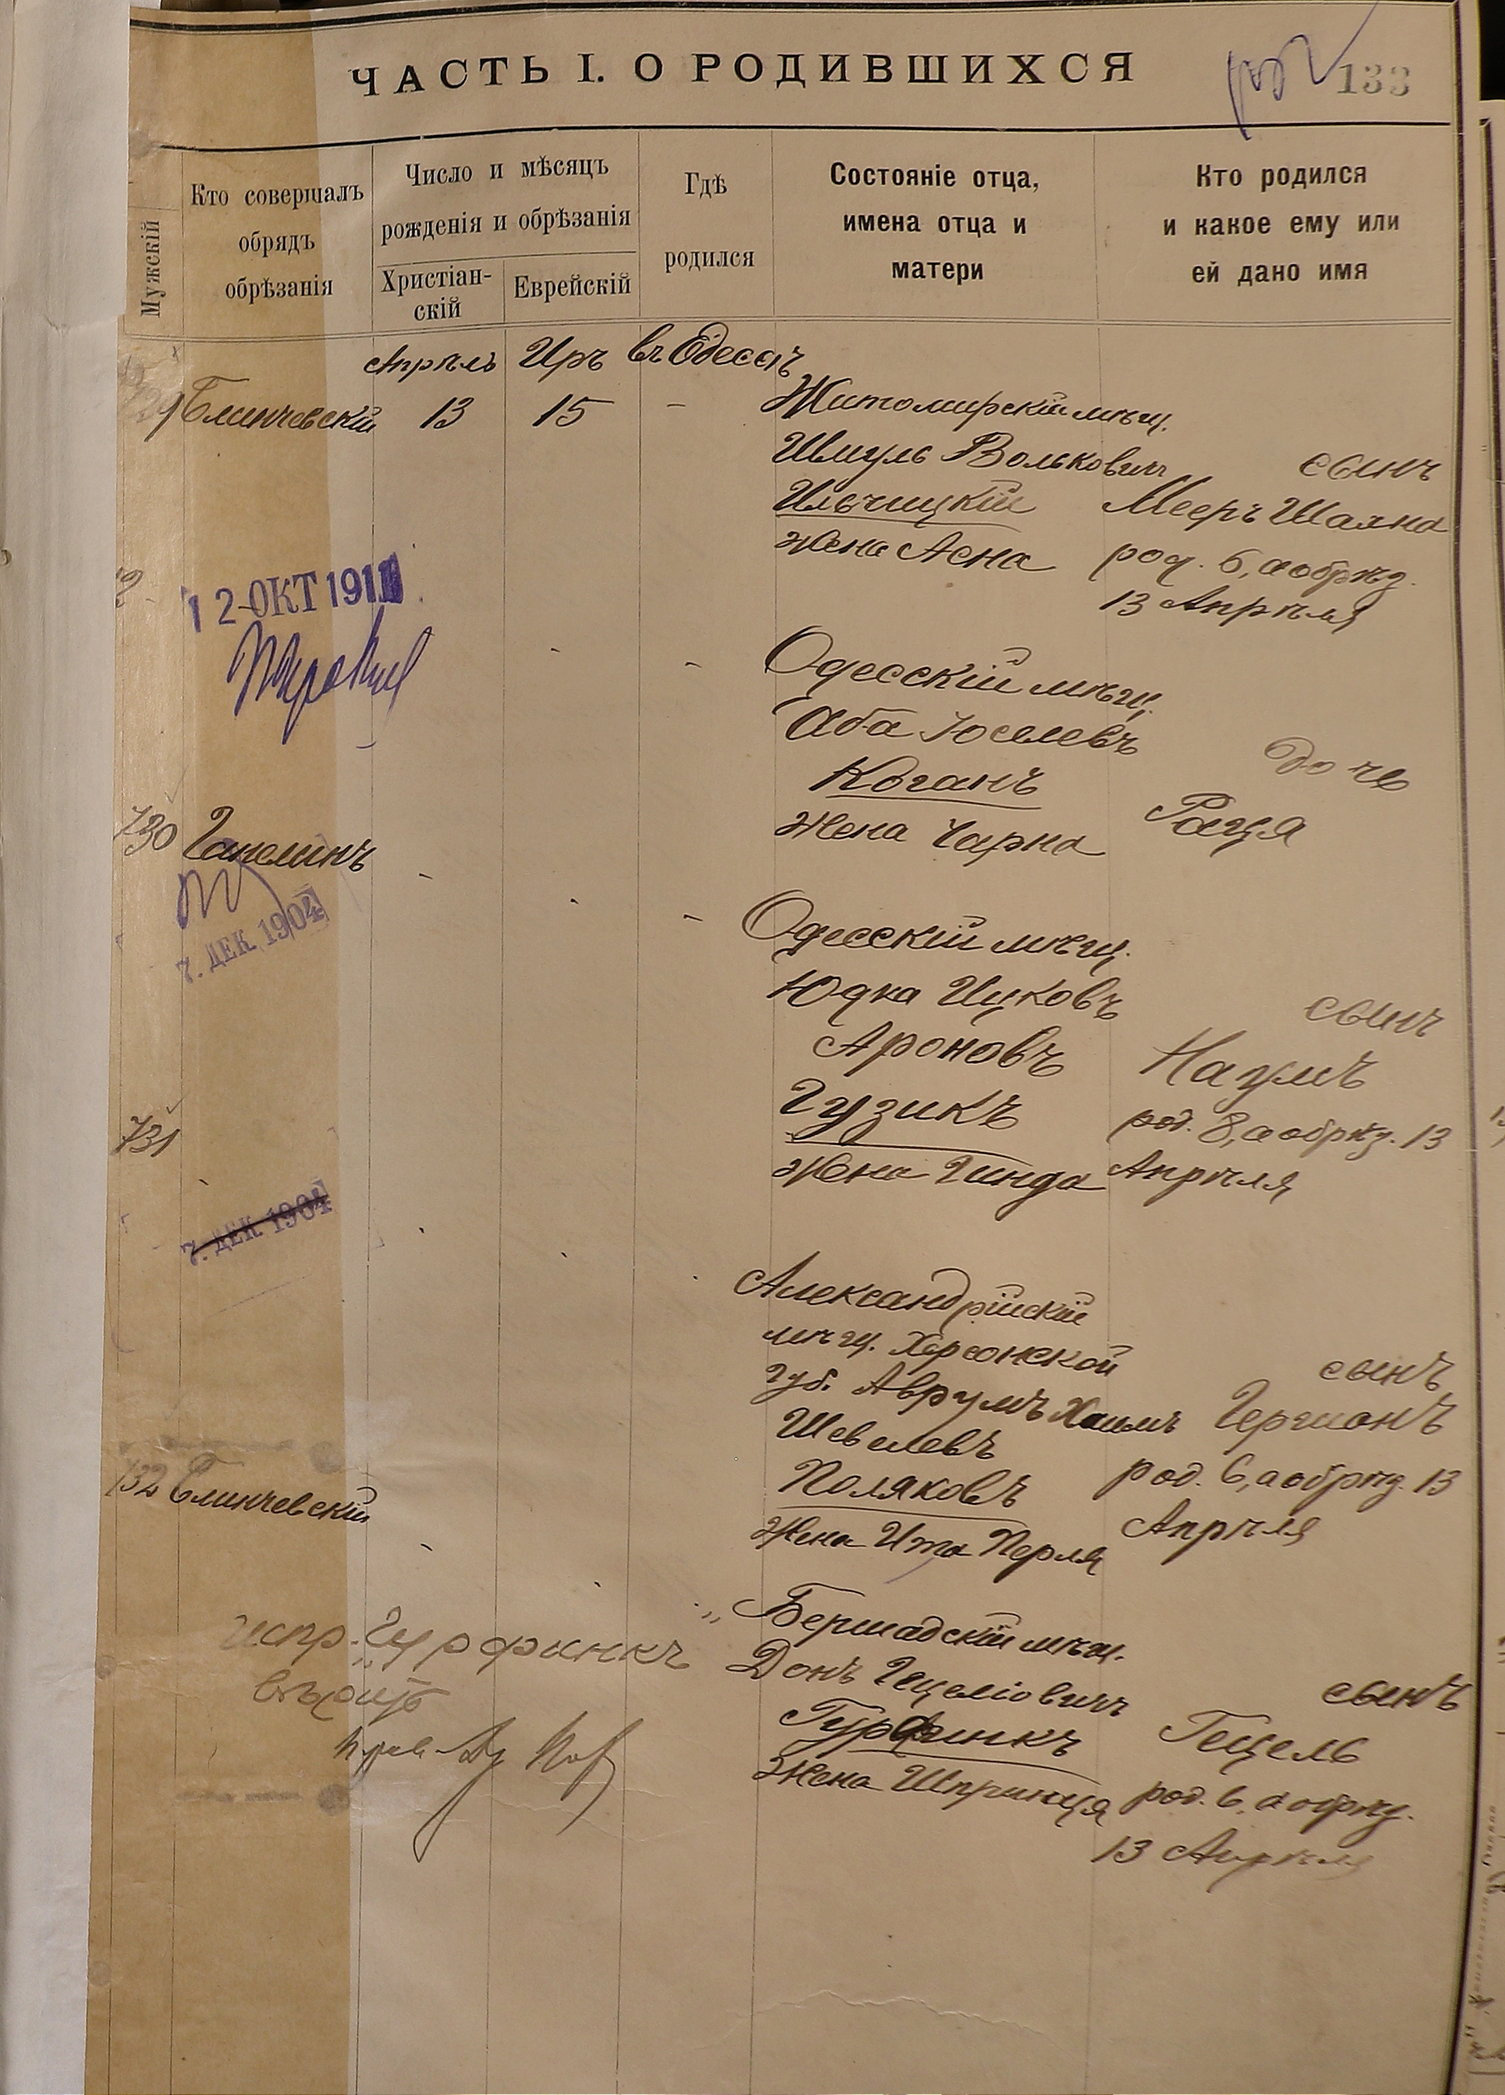 ЧАСТЬ I. О РОДИВШИХСЯ
133
Мужскій
Кто совершалъ
обрядъ
обрѣзанія
Число и мѣсяцъ
рожденія и обрѣзанія
Христіан-
скій
Еврейскій
Гдѣ
родился
Состояніе отца,
имена отца и
матери
Кто родился
и какое ему или
ей дано имя
Апрѣль Иръ въ Одессѣ
Блинчевскій 13 15 -
Житомирскій мѣщ.
Шмуль Вольковичъ
Ильчицкій
жена Асна
сынъ
Мееръ Шаяна
род. 6, а обрѣз.
13 Апрѣля
12-ОКТ 1911
Одесскій мѣщ.
Аба Юселевъ
Коганъ
жена Чарна
дочь
Раця
730 Ганелинъ
7. ДЕК. 1904
Одесскій мѣщ.
Юдка Ицковъ
Ароновъ
Гузикъ
жена Гинда
сынъ
Наумъ
род. 8, а обрѣз. 13
Апрѣля
731
7. ДЕК. 1904
Александрійскій
мѣщ. Херсонской
губ. Аврумъ Хаимъ
Шевелевъ
Поляковъ
жена Ита Перля
сынъ
Гершонъ
род. 6, а обрѣз. 13
Апрѣля
732 Блинчевскій
Бершадскій мѣщ.
Донъ Гецеліовичъ
Гурфинкъ
жена Шпринця
сынъ
Гецель
род. 6, а обрѣз.
13 Апрѣля
испр. "Гурфинкъ"
вѣрить